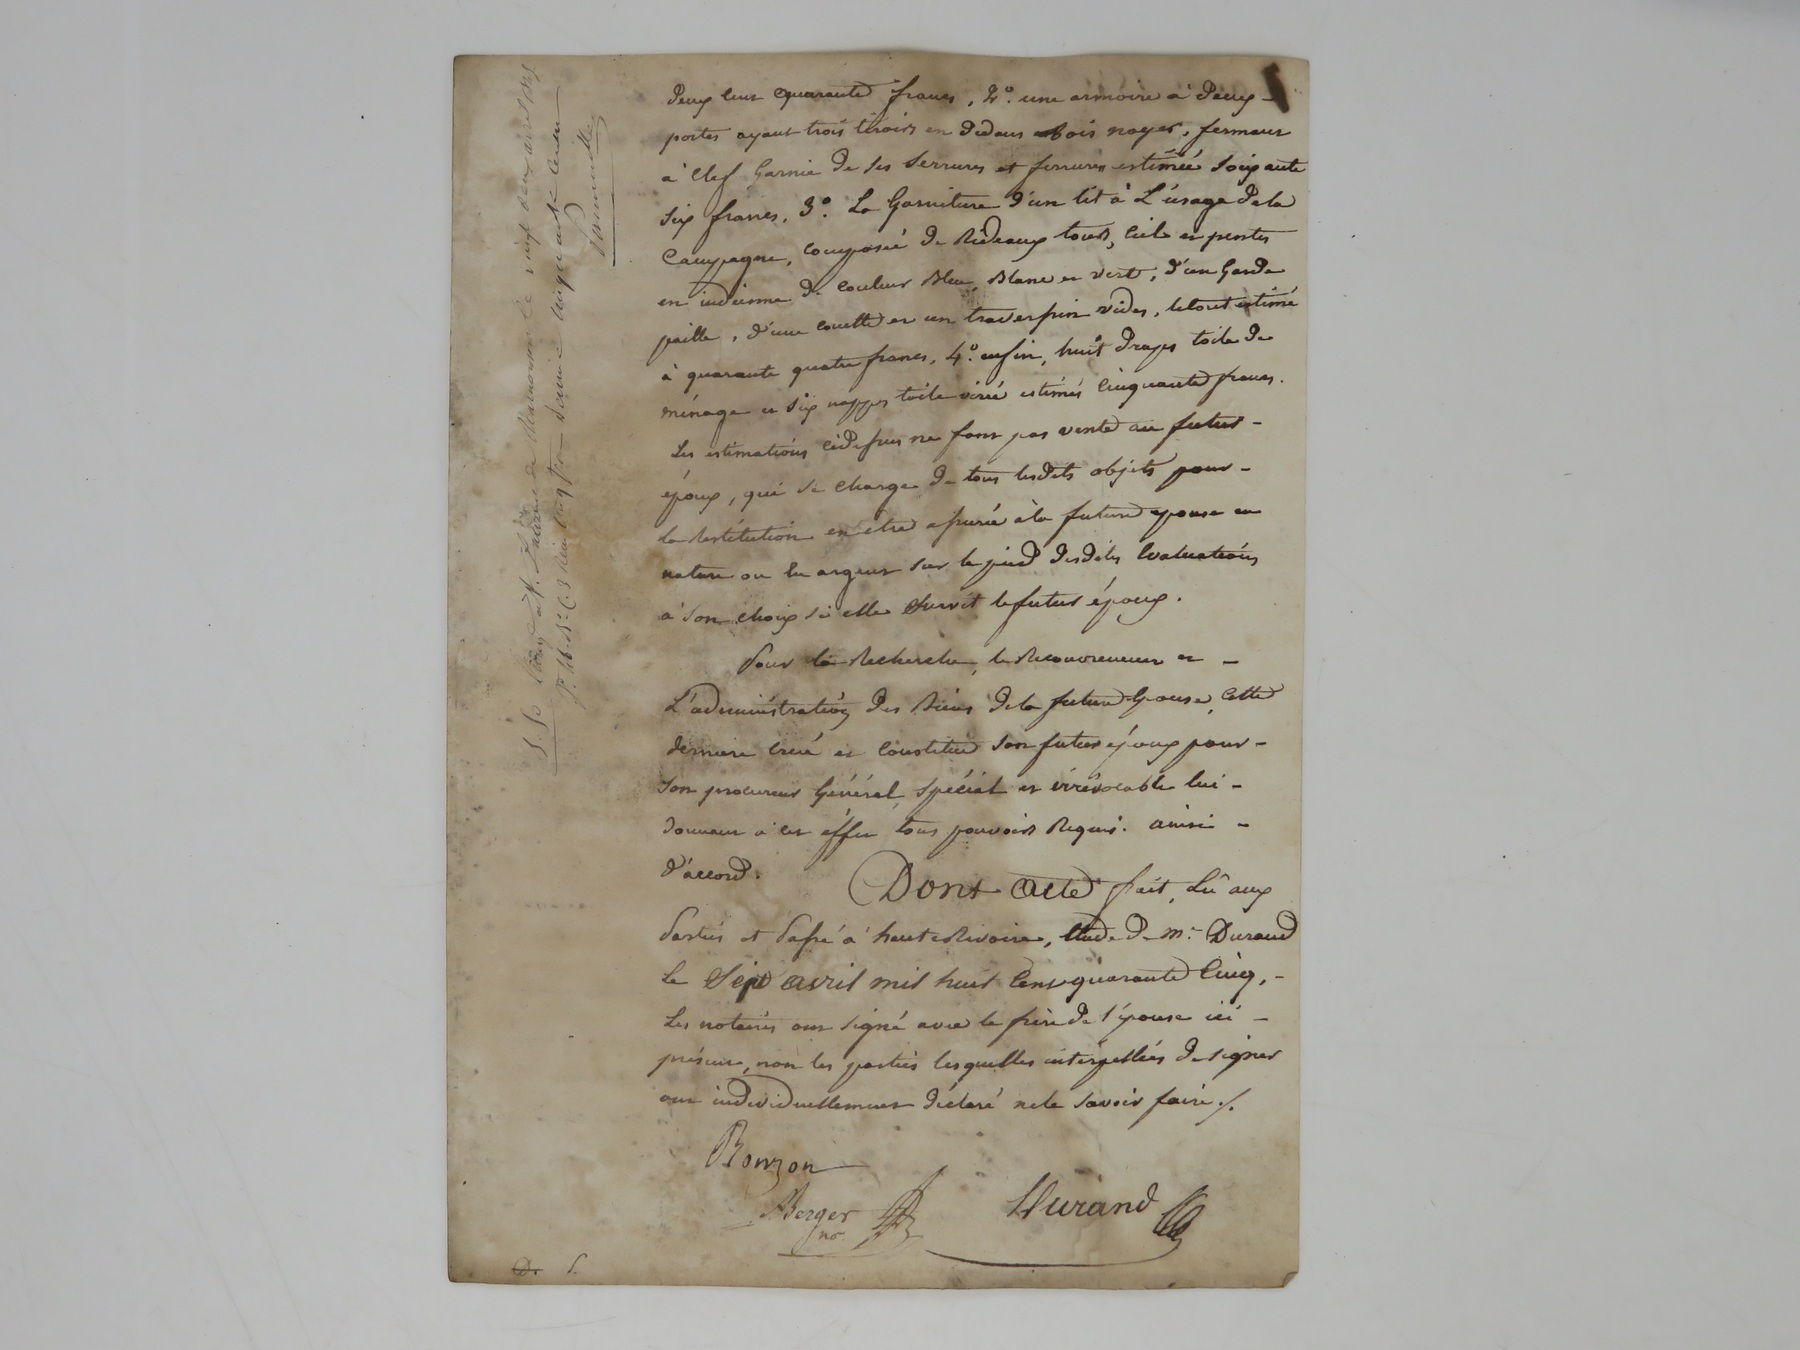 deux cent quarante francs, 2º. une armoire à deux -
portes ayant trois tiroirs en dedans bois noyer, fermant
à clef Garnie de ses serrures et ferrures estimée soixante
six francs, 3º. La Garniture d'un lit à L'usage de la
Campagne, composée de Rideaux tours, ciel et pentes
en indienne de couleur Bleu, Blanc et vert, d'un Garde
paille, d'une couette et un traversin vides, le tout estimé
à quarante quatre francs, 4º. enfin, huit draps toile de
ménage et six nappes toile estimés Cinquante francs.
Les estimations cidessus ne font pas vente au futur -
époux, qui se charge de tous lesdits objets pour -
la Restitution en être assurée à la future epouse en
nature ou en argent sur le pied desdites Evaluations
à son choix si elle survit le futur époux.
Pour la Recherche, le Recouvrement et -
L'administration des Biens de la future Epouse, cette
derniere créé et Constitue son futur époux pour -
son procureur Général, spécial et irrévocable lui -
donnant à cet éffet tous pouvoirs Requis. ainsi -
d'accord. Dont Acte fait, Lû aux
Parties et Passé à hauteRivoire, Etude de Me. Durand
Le Sept avril mil huit Cent quarante Cinq, -
Les notaires ont signé avec le frère de l'épouse ici -
présent, non les parties lesquelles interpellées de signer
ont individuellement déclaré ne le savoir faire ./.
Bonzon
Berger Durand
no.
D. S.